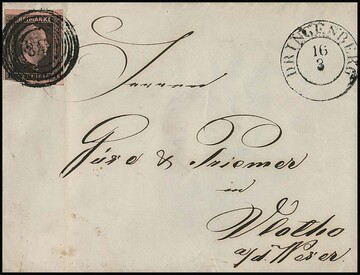 FREIMARKE
DRINGENBERG
16
3
Herren
Güse & Priemer
in
Vlotho
a/d. Weser.